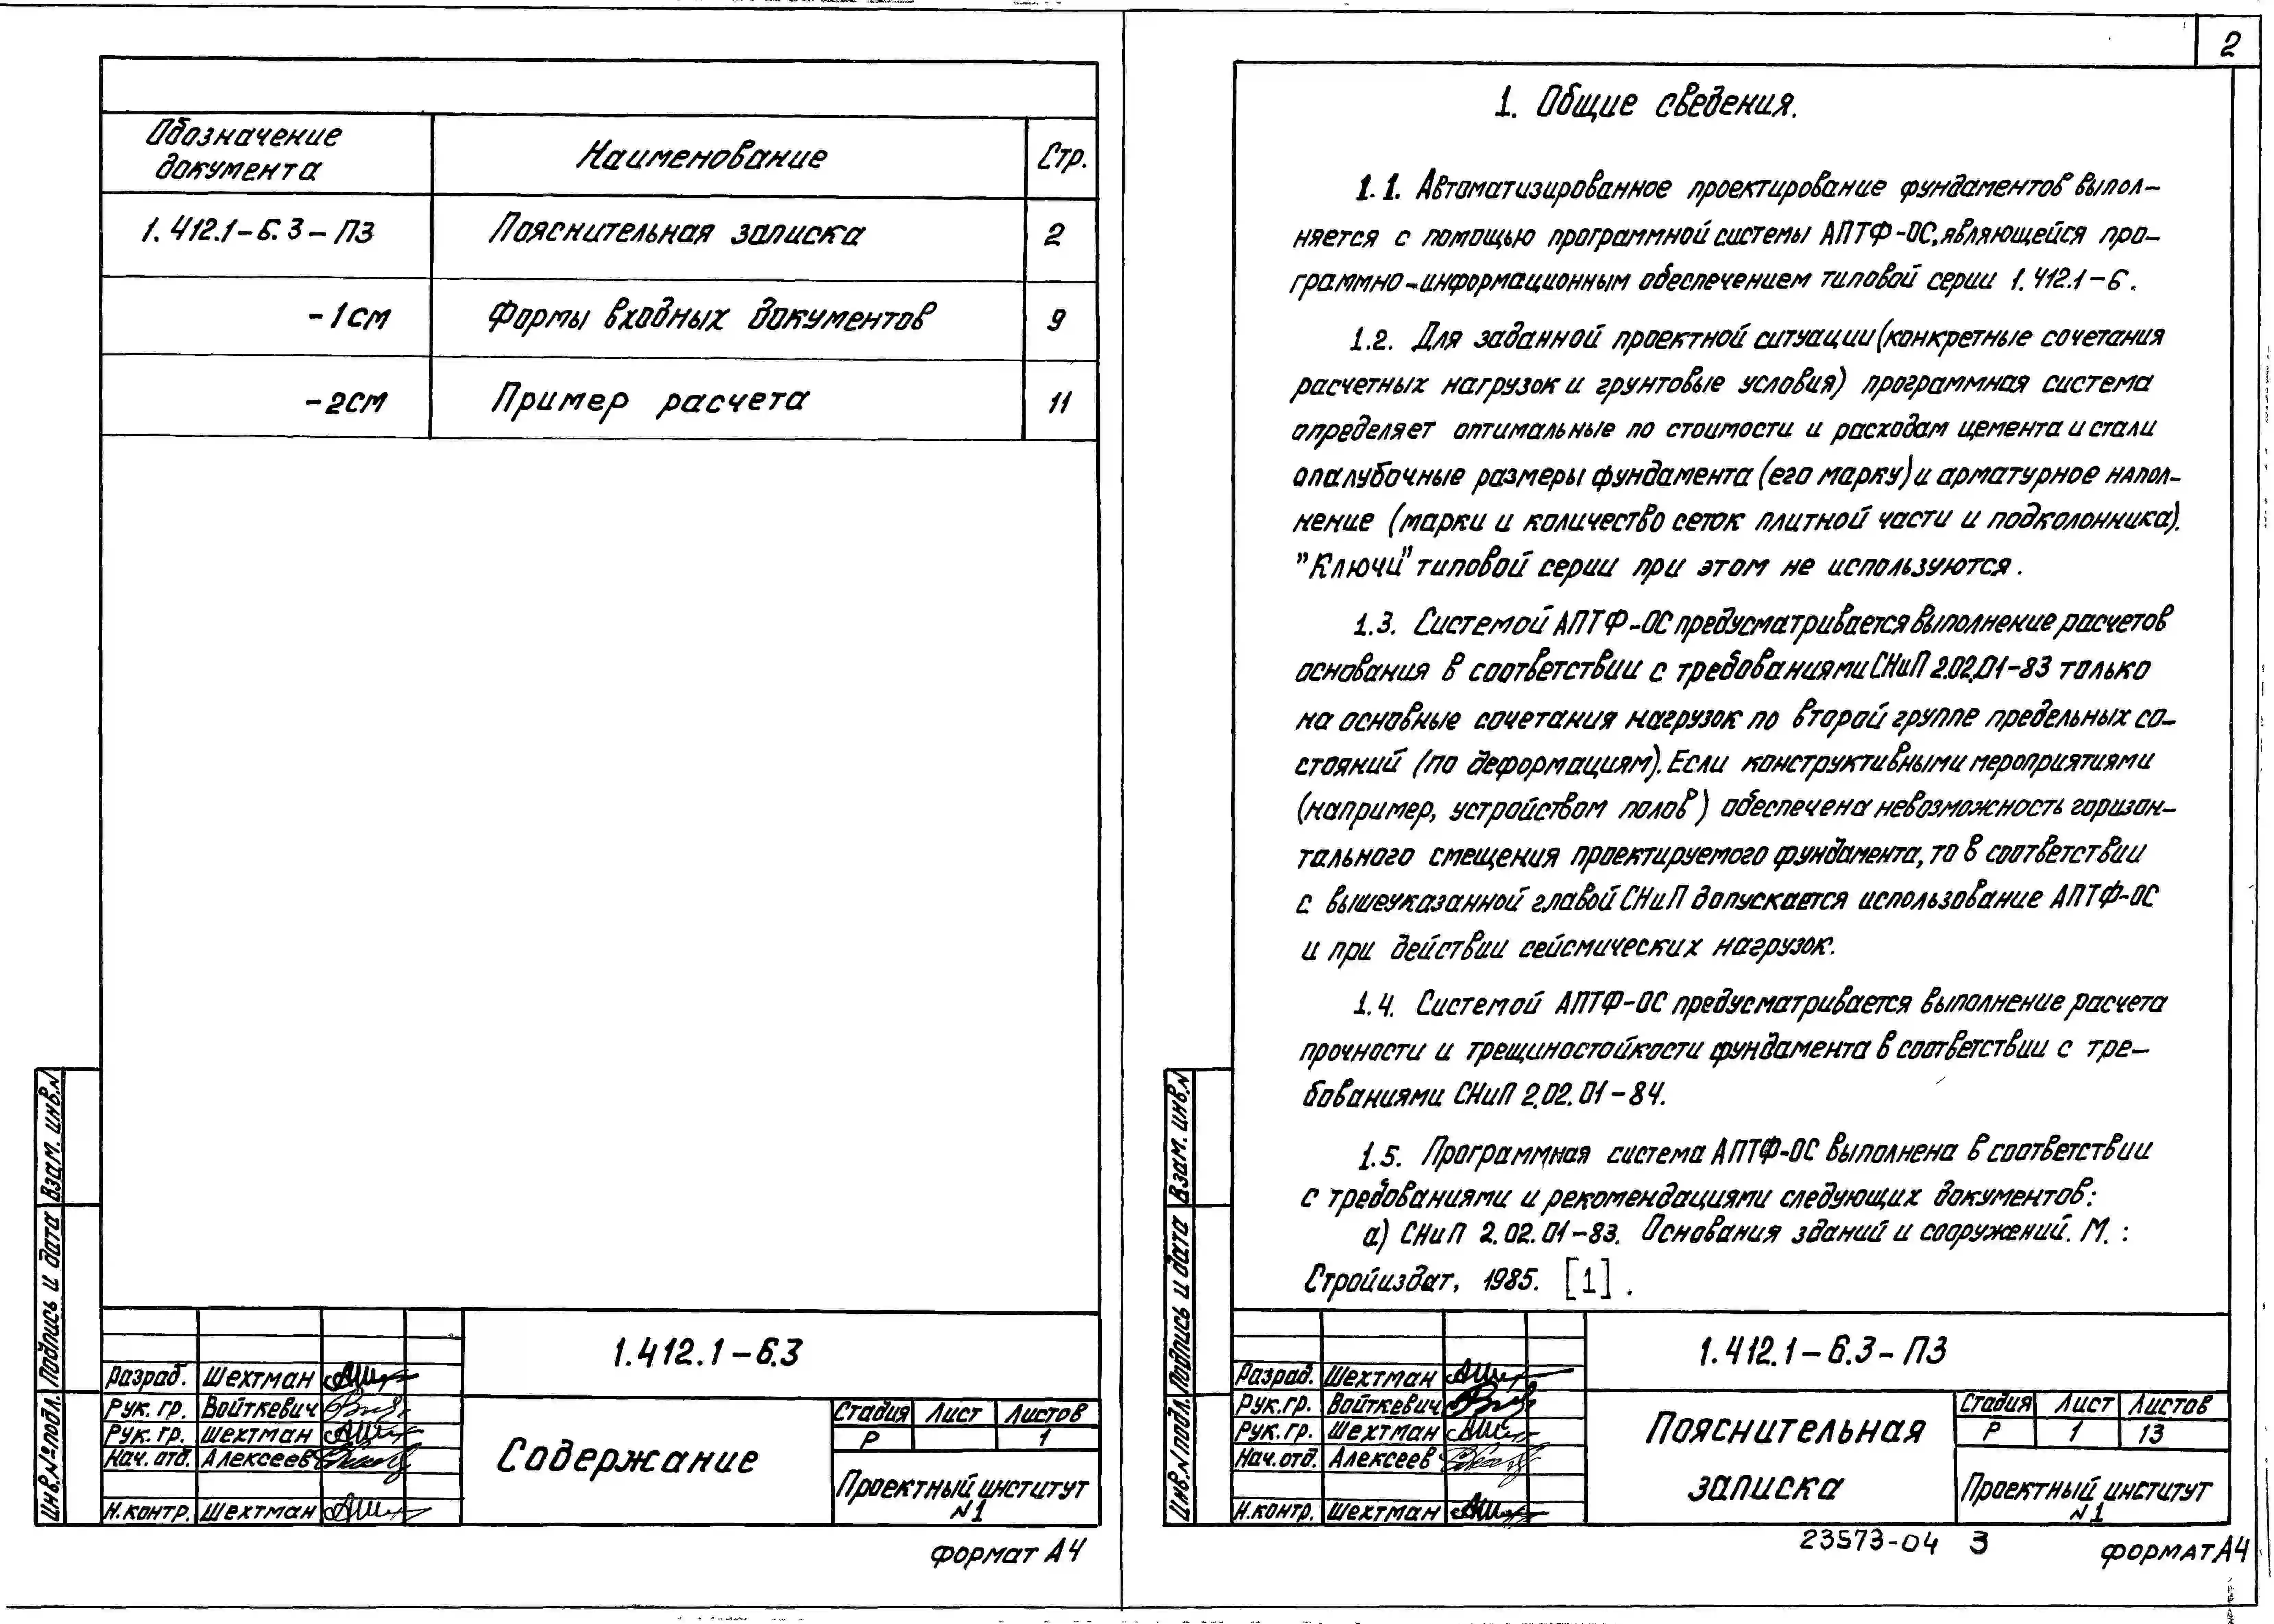 Обозначение документа
Наименование
Стр.
1.412.1-6.3-ПЗ
Пояснительная записка
2
-1см
Формы входных документов
9
-2см
Пример расчета
11
Взам. инв.№
Подпись и дата
Инв.№подл.
1.412.1-6.3
Разраб. Шехтман
Рук. гр. Войткевич
Рук. гр. Шехтман
Нач. отд. Алексеев
Н.контр. Шехтман
Содержание
Стадия Лист Листов
Р 1
Проектный институт
№1
формат А4
2
1. Общие сведения.
1.1. Автоматизированное проектирование фундаментов выпол-
няется с помощью программной системы АПТФ-ОС, являющейся про-
граммно-информационным обеспечением типовой серии 1.412.1-6.
1.2. Для заданной проектной ситуации (конкретные сочетания
расчетных нагрузок и грунтовые условия) программная система
определяет оптимальные по стоимости и расходам цемента и стали
опалубочные размеры фундамента (его марку) и арматурное напол-
нение (марки и количество сеток плитной части и подколонника).
"Ключи" типовой серии при этом не используются.
1.3. Системой АПТФ-ОС предусматривается выполнение расчетов
основания в соответствии с требованиями СНиП 2.02.01-83 только
на основные сочетания нагрузок по второй группе предельных со-
стояний (по деформациям). Если конструктивными мероприятиями
(например, устройством полов) обеспечена невозможность горизон-
тального смещения проектируемого фундамента, то в соответствии
с вышеуказанной главой СНиП допускается использование АПТФ-ОС
и при действии сейсмических нагрузок.
1.4. Системой АПТФ-ОС предусматривается выполнение расчета
прочности и трещиностойкости фундамента в соответствии с тре-
бованиями СНиП 2.02.01-84.
1.5. Программная система АПТФ-ОС выполнена в соответствии
с требованиями и рекомендациями следующих документов:
а) СНиП 2.02.01-83. Основания зданий и сооружений. М. :
Стройиздат, 1985. [1].
Взам. инв.№
Подпись и дата
Инв.№подл.
1.412.1-6.3-ПЗ
Разраб. Шехтман
Рук.гр. Войткевич
Рук.гр. Шехтман
Нач.отд. Алексеев
Н.контр. Шехтман
Пояснительная
записка
Стадия Лист Листов
Р 1 13
Проектный институт
№1
23573-04 3
формат А4